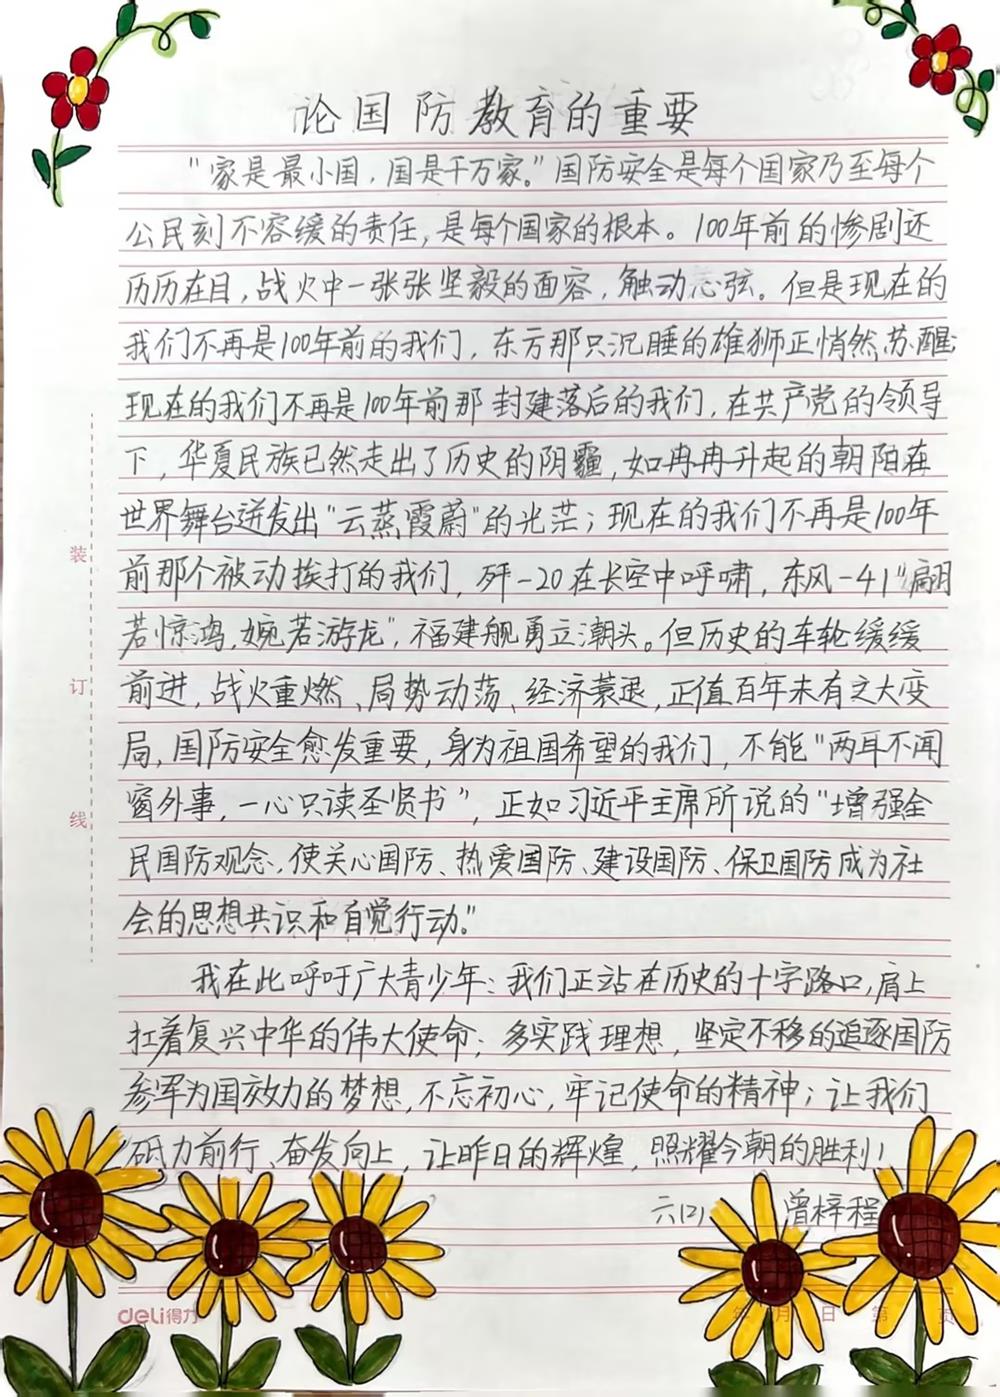 论国防教育的重要
“家是最小国，国是千万家。”国防安全是每个国家乃至每个
公民刻不容缓的责任，是每个国家的根本。100年前的惨剧还
历历在目，战火中一张张坚毅的面容，触动心弦。但是现在的
我们不再是100年前的我们，东方那只沉睡的雄狮正悄然苏醒；
现在的我们不再是100年前那封建落后的我们，在共产党的领导
下，华夏民族已然走出了历史的阴霾，如冉冉升起的朝阳在
世界舞台迸发出“云蒸霞蔚”的光芒；现在的我们不再是100年
前那个被动挨打的我们，歼-20在长空中呼啸，东风-41“翩
若惊鸿，婉若游龙”，福建舰勇立潮头。但历史的车轮缓缓
前进，战火重燃、局势动荡、经济衰退，正值百年未有之大变
局，国防安全愈发重要，身为祖国希望的我们，不能“两耳不闻
窗外事，一心只读圣贤书”，正如习近平主席所说的“增强全
民国防观念，使关心国防、热爱国防、建设国防、保卫国防成为社
会的思想共识和自觉行动。”
我在此呼吁广大青少年：我们正站在历史的十字路口，肩上
扛着复兴中华的伟大使命；多实践理想，坚定不移的追逐国防
参军为国效力的梦想，不忘初心，牢记使命的精神；让我们
砥力前行、奋发向上，让昨日的辉煌，照耀今朝的胜利！
六(2) 曾梓程
装
订
线
deli得力
年 月 日 第 页